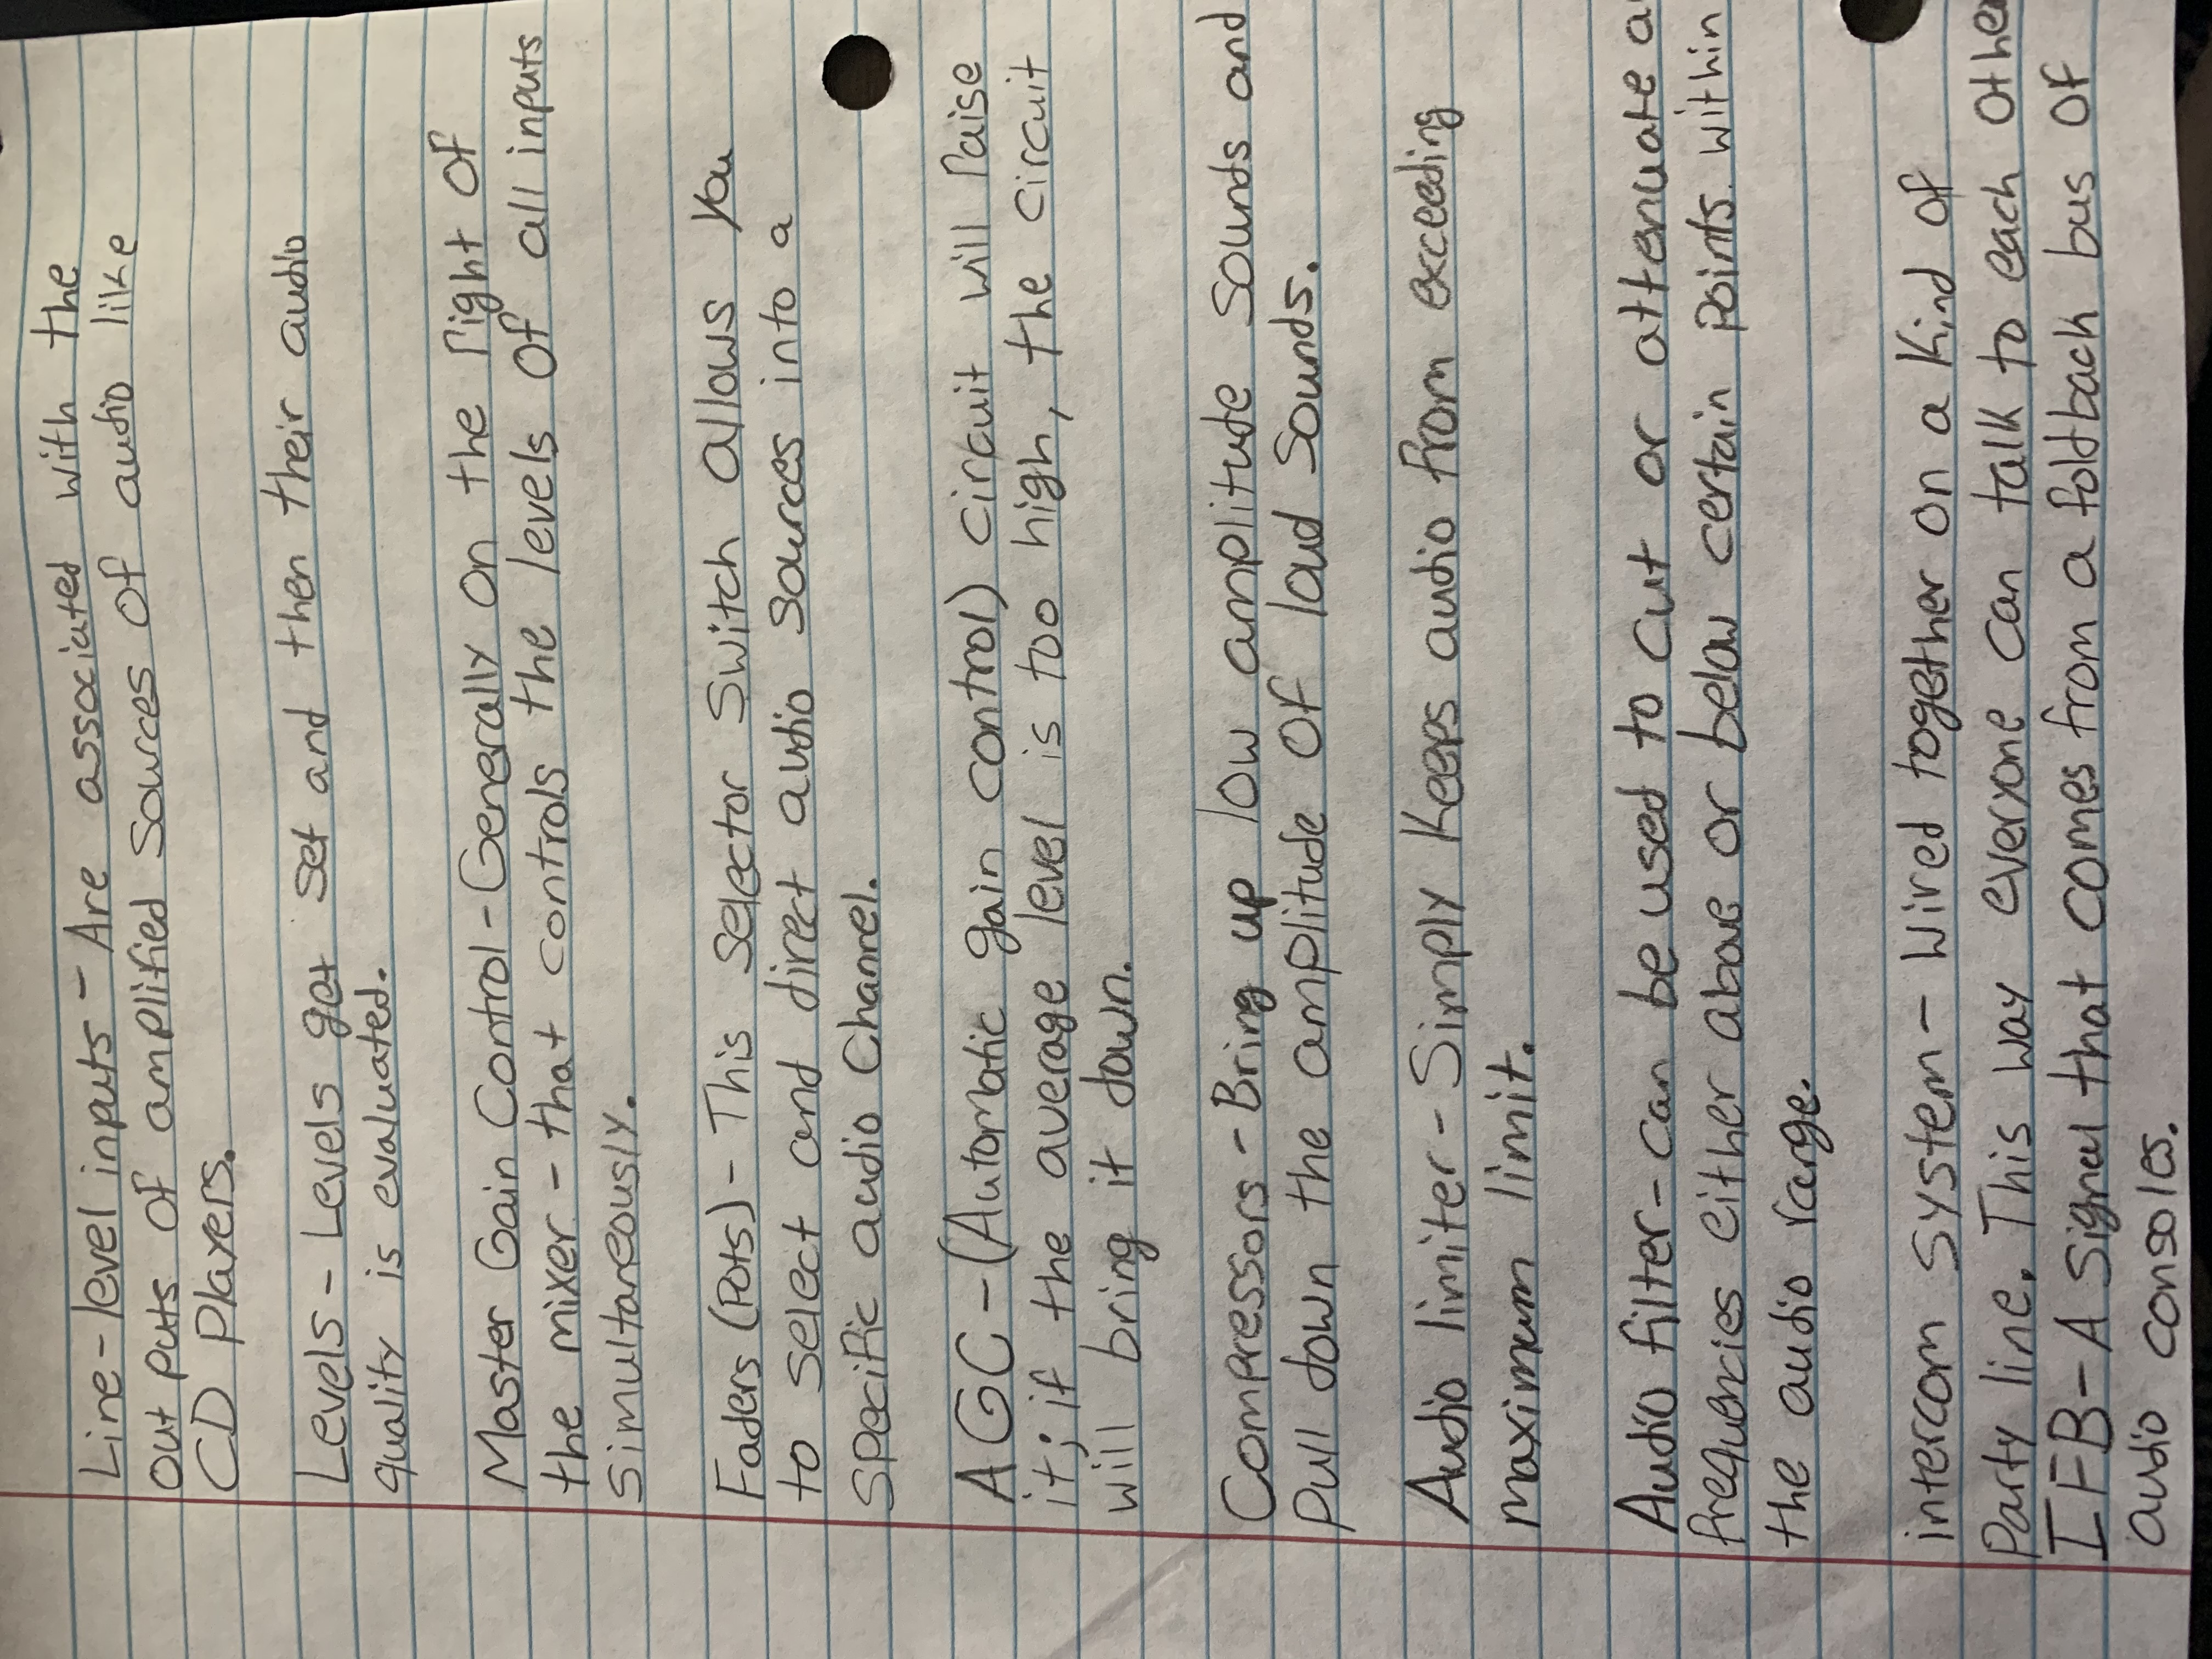 Line-level inputs - Are associated with the
out puts of amplified sources of audio like
CD Players.
Levels - Levels get set and then their audio
quality is evaluated.
Master Gain Control - Generally on the right of
the mixer - that controls the levels of all inputs
simultaneously.
Faders (Pots) - This selector switch allows you
to select and direct audio sources into a
specific audio Channel.
AGC - (Automatic gain control) circuit will raise
it; if the average level is too high, the circuit
will bring it down.
Compressors - Bring up low amplitude sounds and
pull down the amplitude of loud sounds.
Audio limiter - Simply keeps audio from exceeding
maximum limit.
Audio filter - can be used to cut or attenuate
frequencies either above or below certain points within
the audio range.
intercom system - Wired together on a kind of
Party line. This way everyone can talk to each other
IFB - A signal that comes from a foldback bus of
audio consoles.